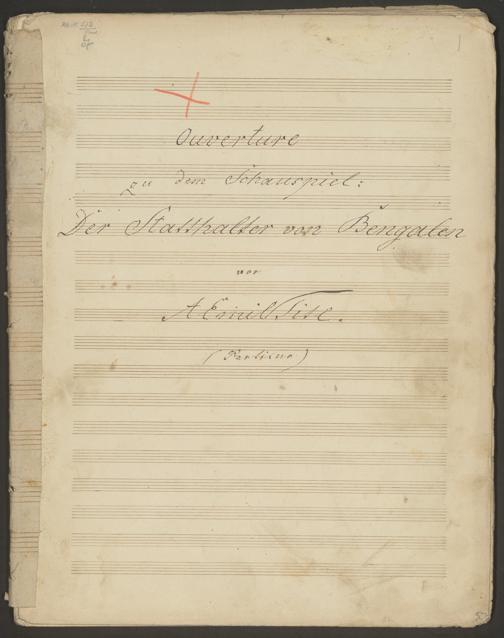 Ouverture
zu dem Schauspiel:
Der Statthalter von Bengalen
von
AEmil Titl.
(Partitur)